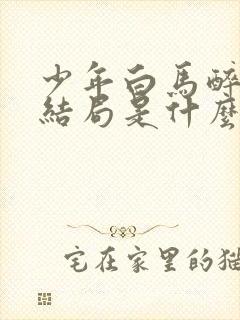 少年白馬醉
結局是什麼
宅在家里的猫